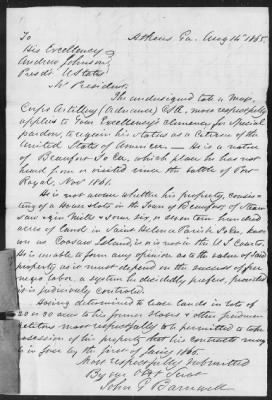 Athens Ga. Aug 14th 1865.
To
His Excellency
Andrew Johnson
Presdt. U States
Mr President,
The undersigned late a Major
Corps Artillery (Ordnance) CSA, most respectfully
applies to Your Excellency's clemency for Special
pardon, to regain his status as a Citizen of the
United States of America. — He is a native
of Beaufort So Ca, which place he has not
heard from or visited since the battle of Port
Royal, Novr 1861.
He is not aware whether his property, consis-
ting of a House & lots in the Town of Beaufort, a Steam
saw & gin Mill & some six or seventeen hundred
acres of land in Saint Helena Parish So Ca, known
as Coosaw Island is or is not in the U S Courts.
He is unable to form any opinion as to the value of said
property as it must depend on the success of free
negro labor, a system he decidedly prefers, provided
it is judiciously controled.
Having determined to lease lands in lots of
20 or 30 acres to his former slaves & other freedmen
petitions most respectfully to be permitted to take
possession of his property that his contracts may
be in force by the first of Jany 1866.
Most respectfully submitted
By your Obt Servt
John G Barnwell